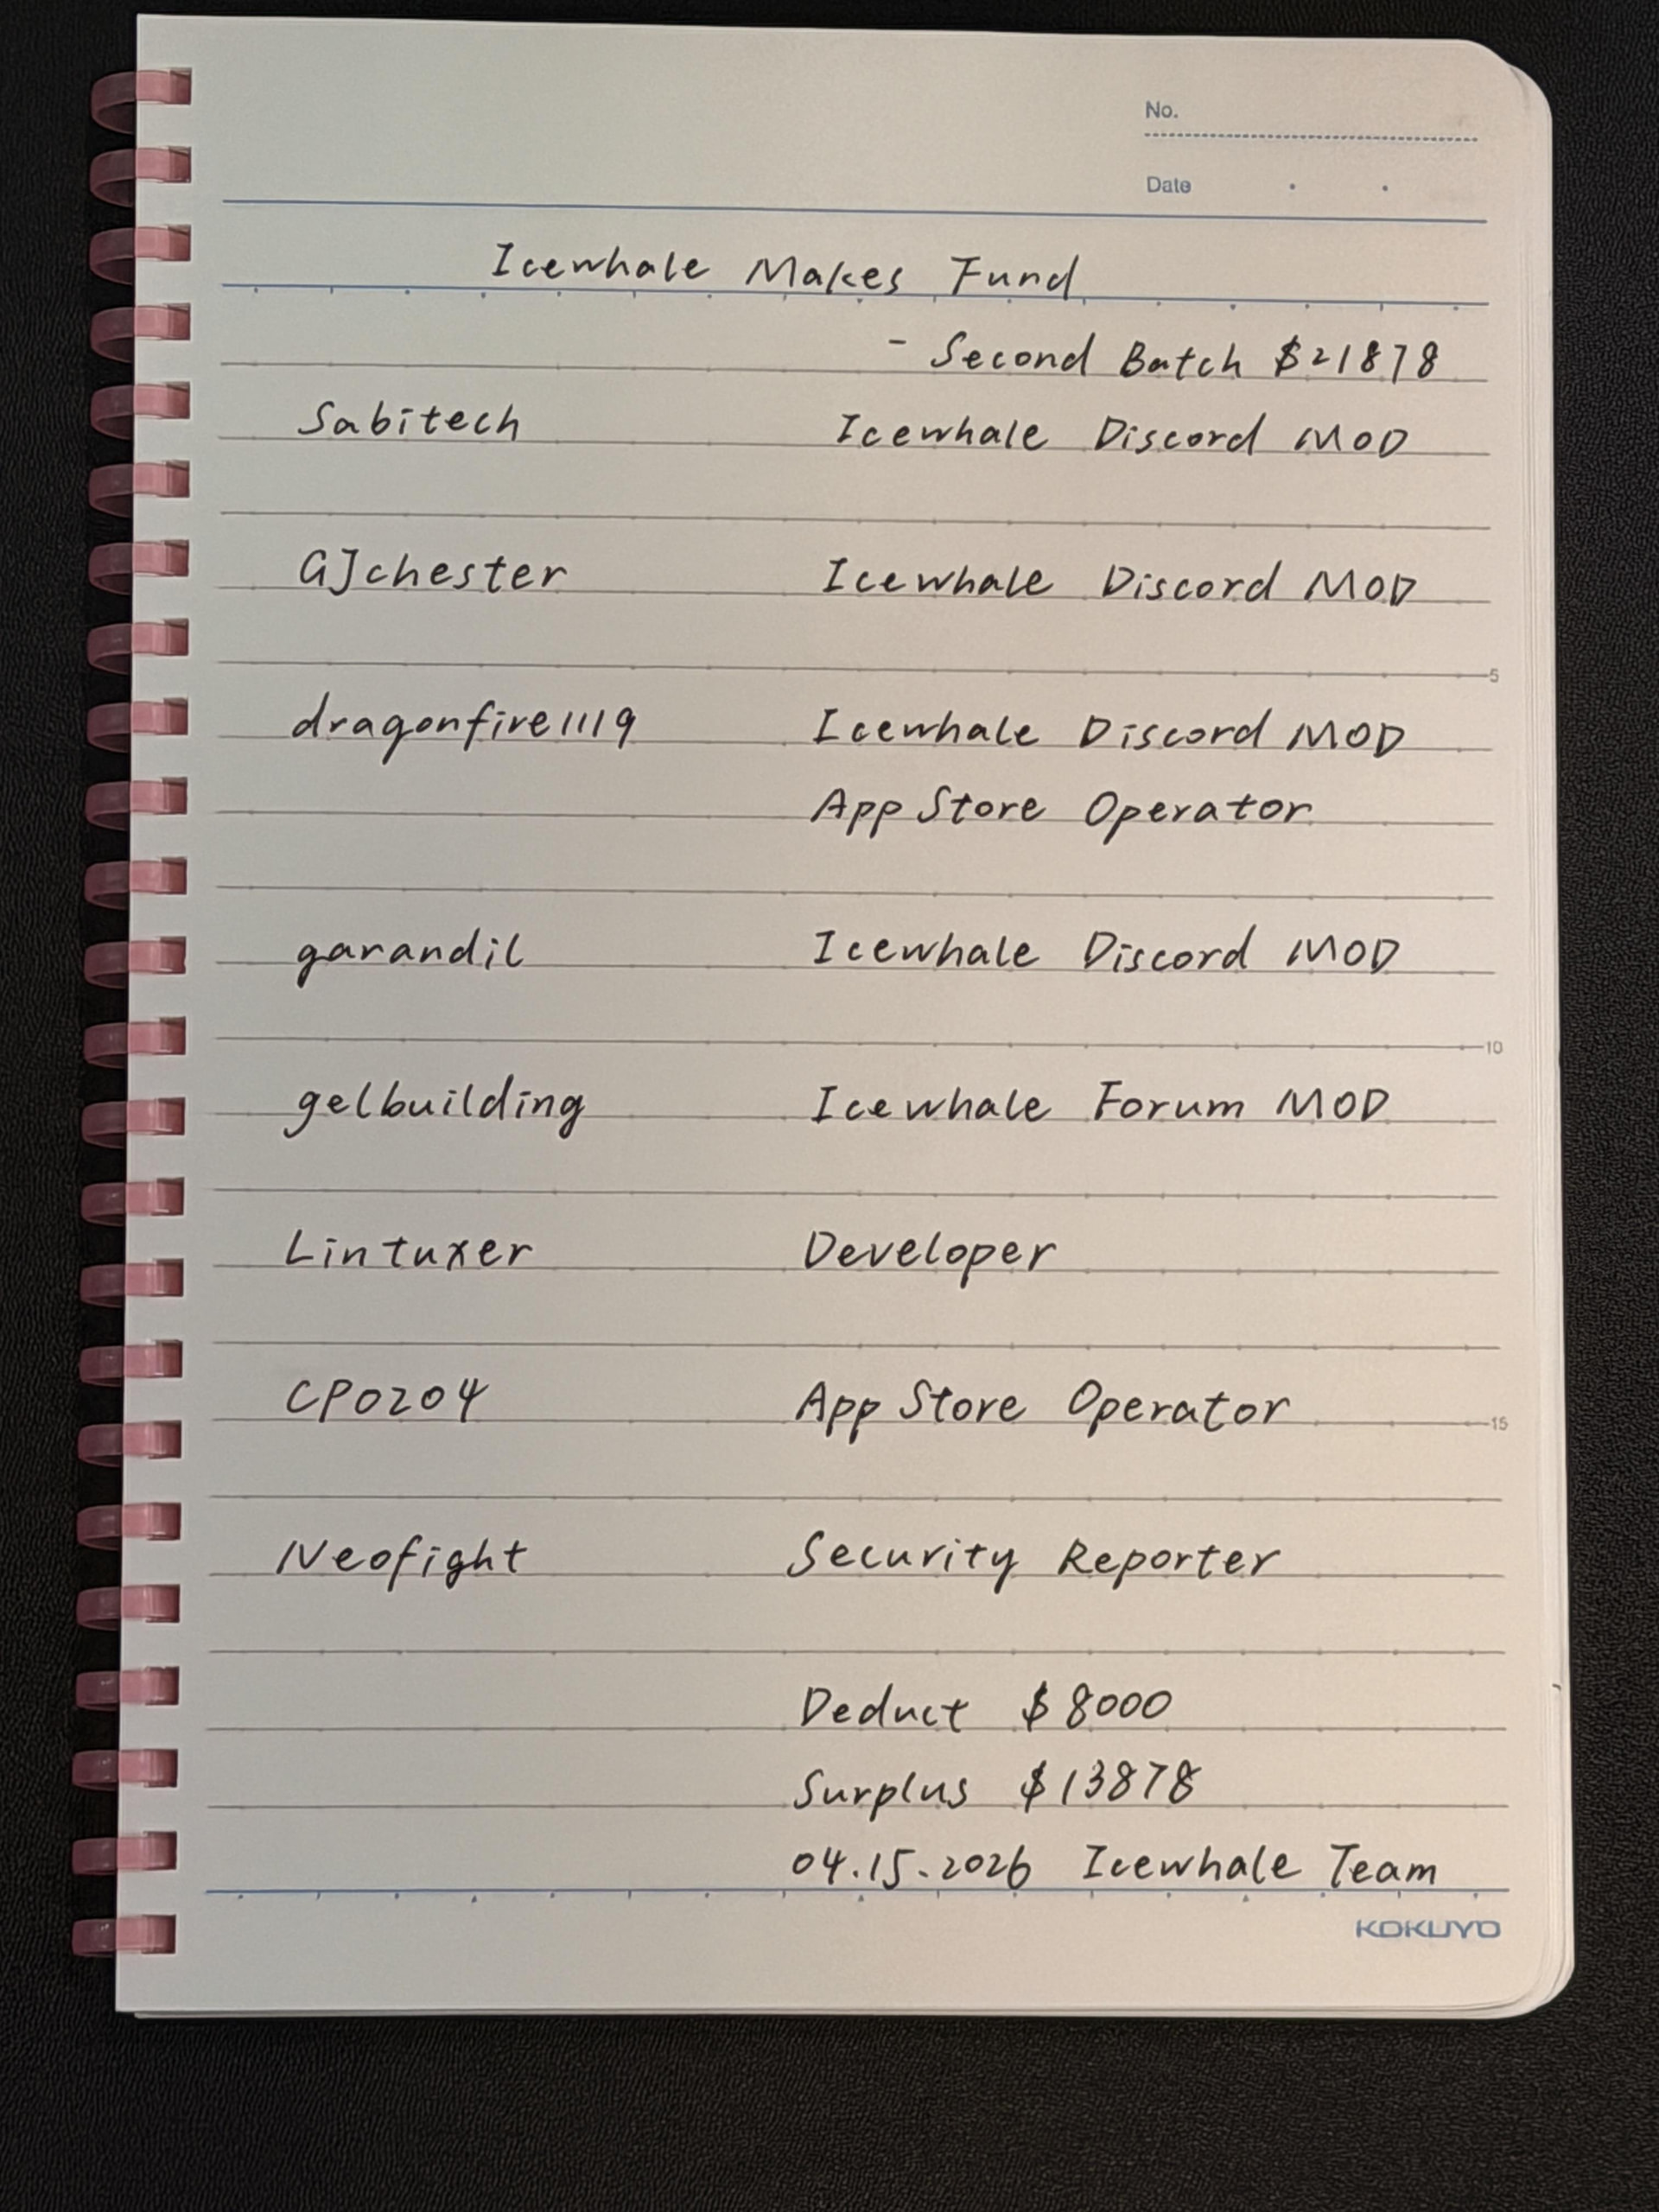 No.
Date
Icewhale Makes Fund
- Second Batch $21878
Sabitech Icewhale Discord MOD
GJchester Icewhale Discord MOD
5
dragonfire1119 Icewhale Discord MOD
App Store Operator
garandil Icewhale Discord MOD
10
gelbuilding Icewhale Forum MOD
Lintuxer Developer
CP0204 App Store Operator
15
Neofight Security Reporter
Deduct $8000
Surplus $13878
04.15.2026 Icewhale Team
KOKUYO